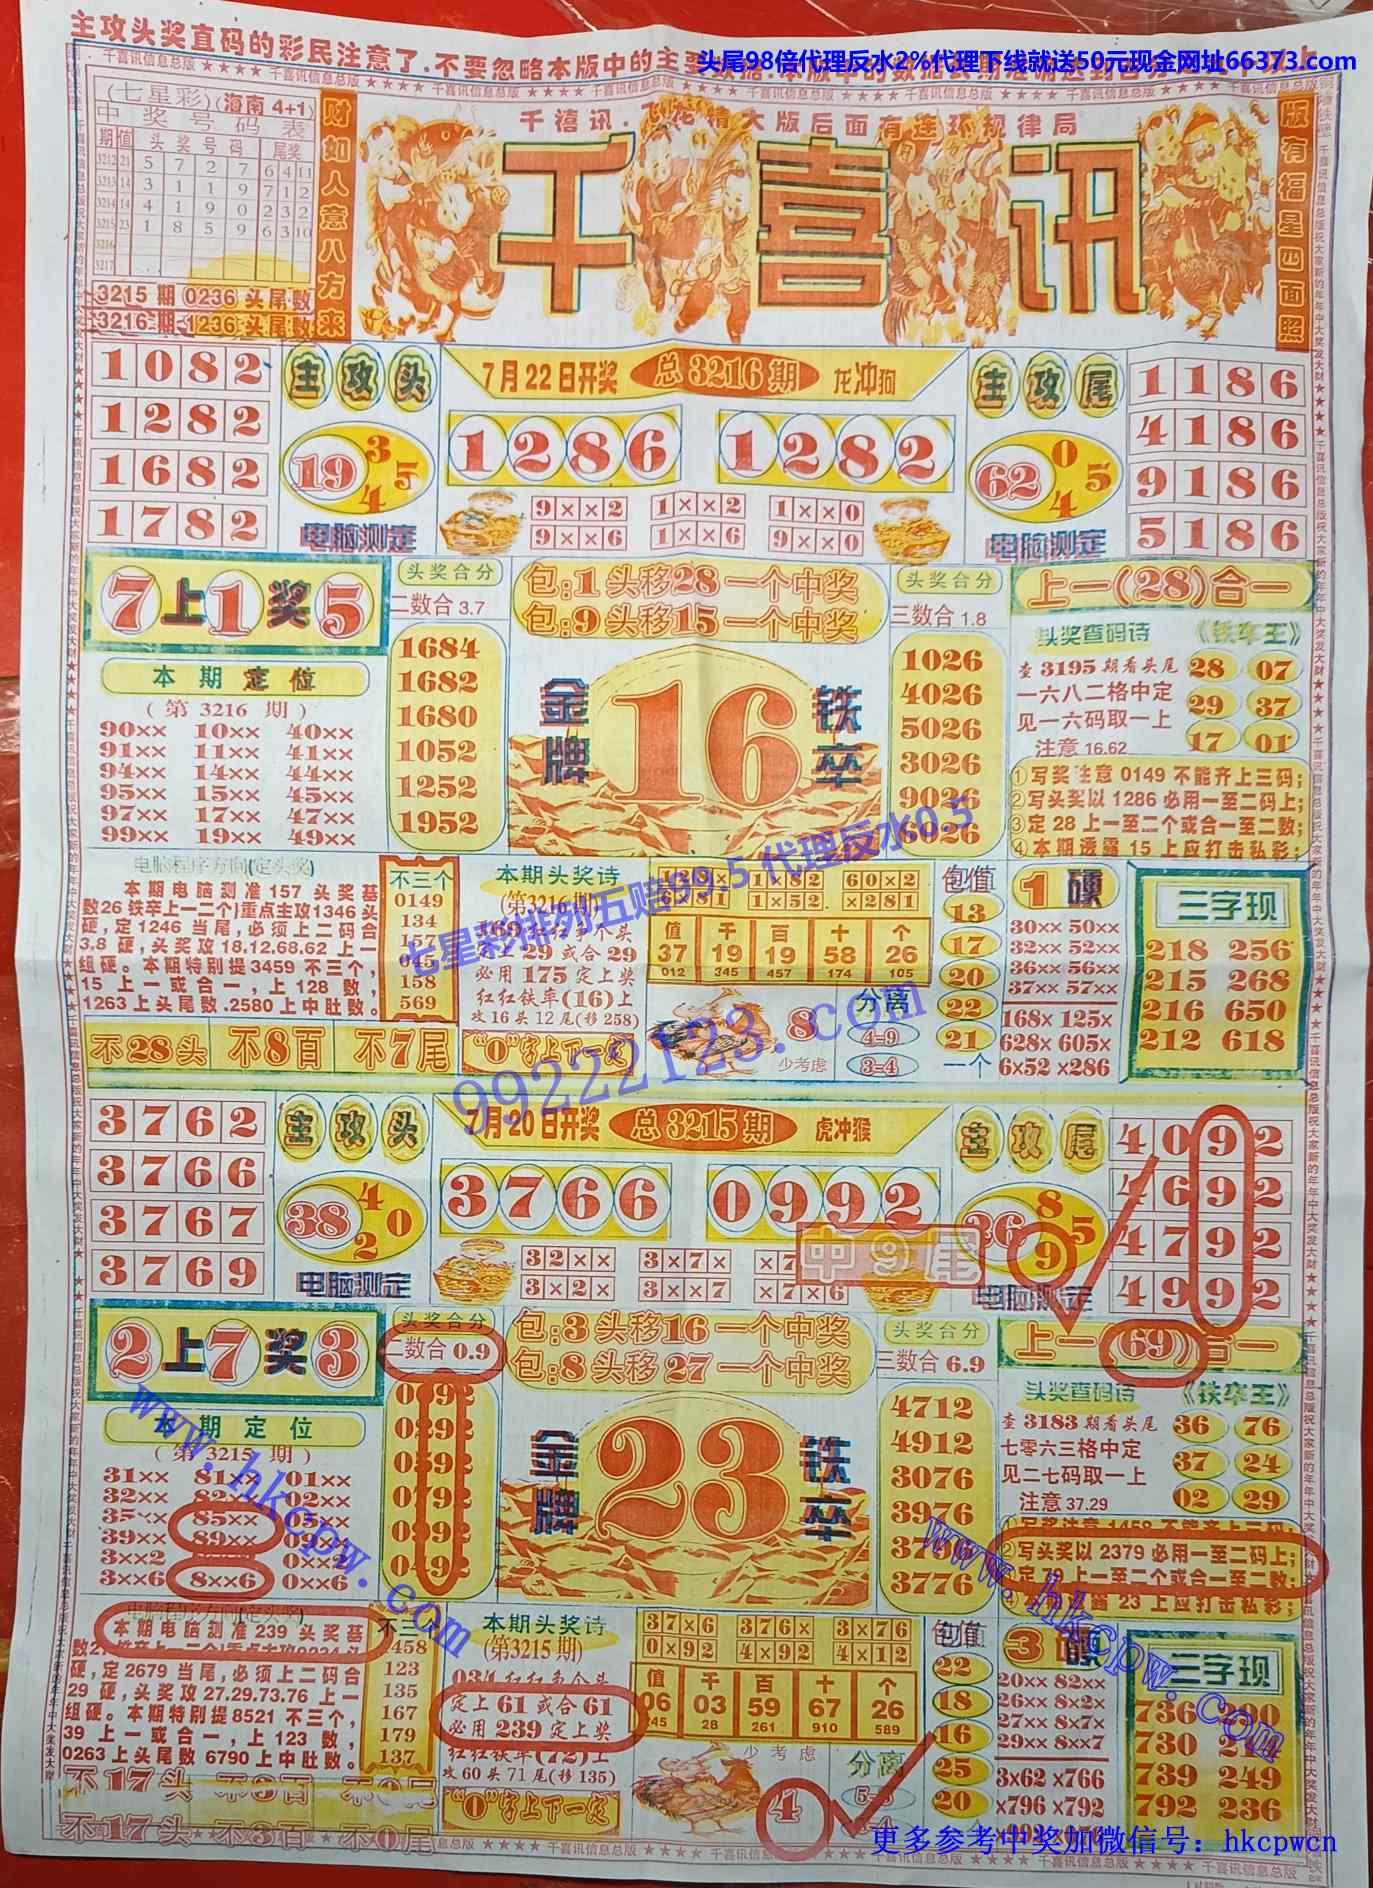 主攻头奖直码的彩民注意了.不要忽略本版中的主要
头尾98倍代理反水2%代理下线就送50元现金网址66373.com
(七星彩)(海南4+1)
中奖号码表
期 值 头奖号码 尾奖
3212 21 5 7 2 7 6 4 11
3213 14 3 1 1 9 7 1 2
3214 14 4 1 9 0 2 3 2
3215 23 1 8 5 9 6 3 10
3216
3217
3215期 0236 头尾数
3216期 1236 头尾数
财如人意八方来
千喜讯
版有福星四面照
1082
1282
1682
1782
主攻头
19 3 5 4
电脑测定
7月22日开奖 总3216期 龙冲狗
1286 1282
9××2 1××2 1××0
9××6 1××6 9××0
主攻尾
62 0 5 4
电脑测定
1186
4186
9186
5186
7上1奖5
本期定位
(第3216期)
90×× 10×× 40××
91×× 11×× 41××
94×× 14×× 44××
95×× 15×× 45××
97×× 17×× 47××
99×× 19×× 49××
头奖合分
二数合3.7
1684
1682
1680
1052
1252
1952
包:1头移28一个中奖
包:9头移15一个中奖
金牌 16 铁卒
头奖合分
三数合1.8
1026
4026
5026
3026
9026
6026
上一(28)合一
头奖查码诗 《铁卒王》
查3195期看头尾 28 07
一六八二格中定 29 37
见一六码取一上 17 01
注意16.62
①写奖注意0149不能齐上三码;
②写头奖以1286必用一至二码上;
③定28上一至二个或合一至二数;
④本期透露15上应打击私彩;
电脑程序方向(定头奖)
本期电脑测准157头奖基
数26铁卒上一二个}重点主攻1346头
硬,定1246当尾,必须上二码合
3.8硬,头奖攻18.12.68.62上一
组硬。本期特别提3459不三个,
15上一或合一,上128数,
1263上头尾数.2580上中肚数。
不三个
0149
134
157
045
158
569
不28头 不8百 不7尾
本期头奖诗
(第3216期)
定上29或合29
必用175定上奖
红红铁卒(16)上
攻16头12尾(移258)
“0”字上下一定
168× 1×82 60×2
6×81 1×52 ×281
值 千 百 十 个
37 19 19 58 26
012 345 457 174 105
8
少考虑
分离
4=9
3=4
包值
13
17
20
22
21
一个
1硬
30×× 50××
32×× 52××
36×× 56××
37×× 57××
168× 125×
628× 605×
6×52 ×286
三字现
218 256
215 268
216 650
212 618
七星彩排列五赔99.5 代理反水0.5
99222123.com
3762
3766
3767
3769
主攻头
38 4 0 2
电脑测定
7月20日开奖 总3215期 虎冲猴
3766 0992
32×× 3×7×
3×2× 3×7× ×7×6
中9尾
主攻尾
8 5 9
电脑测定
4092
4692
4792
4992
2上7奖3
本期定位
(第3215期)
31×× 81×× 01××
32×× 82×× 02××
85××
39×× 89××
3××2 0××2
3××6 8××6 0××6
头奖合分
二数合0.9
0392
0292
0592
0792
0992
0492
包:3头移16一个中奖
包:8头移27一个中奖
金牌 23 铁卒
头奖合分
三数合6.9
4712
4912
3076
3976
3776
上一(69)合一
头奖查码诗 《铁卒王》
查3183期看头尾 36 76
七零六三格中定 37 24
见二七码取一上 02 29
注意37.29
②写头奖以2379必用一至二码上;
本期电脑测准239头奖基
硬,定2679当尾,必须上二码合
29硬,头奖攻27.29.73.76上一
组硬。本期特别提8521不三个,
39上一或合一,上123数,
0263上头尾数6790上中肚数。
不三个
458
123
135
167
179
137
不17头 不3百 不0尾
本期头奖诗
(第3215期)
定上61或合61
必用239定上奖
红红铁卒(72)上
攻60头71尾(移135)
“0”字上下一定
37×6 376× 3×76
0×92 4×92 4×12
值 千 百 十 个
06 03 59 67 26
245 28 261 910 589
少考虑
4
分离
包值
22
18
16
25
20
3硬
20×× 82××
26×× 8×2×
27×× 8×7×
29×× 8××7
3×62 ×766
×796 ×792
三字现
736
730
739 249
792 236
www.hkcpw.com
www.hkcpw.com
更多参考中奖加微信号:hkcpwcn